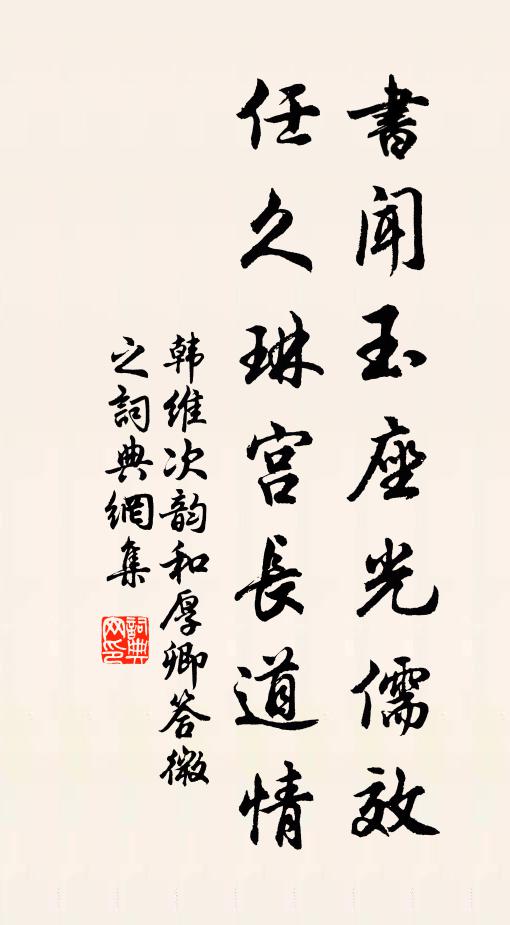 書聞玉座光儒效
任久琳宫長道情
韩維次韵和厚卿答微
之詞典網集
詞典
网印